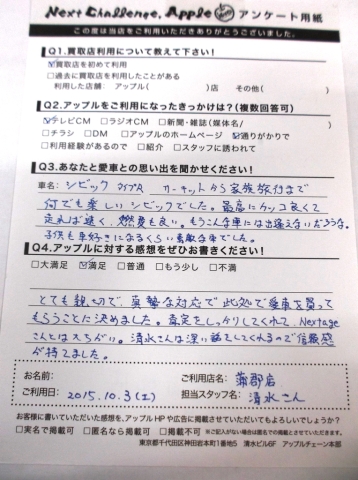 Next Challenge. Apple アンケート用紙
この度は当店をご利用いただきありがとうございました。
Q1.買取店利用について教えて下さい!
☑買取店を初めて利用
□過去に買取店を利用したことがある
利用した店舗: アップル( )店 その他( )
Q2.アップルをご利用になったきっかけは?(複数回答可)
☑テレビCM □ラジオCM □新聞・雑誌(媒体名/ )
□チラシ □DM □アップルのホームページ ☑通りがかりで
□利用経験があるので □紹介 □スタッフに誘われて
Q3.あなたと愛車との思い出を聞かせください!
車名: シビック タイプR サーキットから家族旅行まで
何でも楽しいシビックでした。最高にカッコ良くて
走れば速く、燃費も良い。もうこんな車には出逢えないだろうな。
子供も車好きになるくらい素敵な車でした。
Q4.アップルに対する感想をぜひお書きください!
□大満足 ☑満足 □普通 □もう少し □不満
とても親切で、真摯な対応で此処で愛車を買って
もらうことに決めました。査定をしっかりしてくれて、Nextage
さんとは大ちがい。清水さんは深い話をしてくれるので信頼感
が持てました。
お名前: ご利用店名: 蒲郡店
ご利用日: 2015.10.3(土) 担当スタッフ名: 清水さん
お客様に書いていただいた感想を、アップルHPや広告に掲載させていただいてもよろしいでしょうか?
□実名で掲載可 □匿名なら掲載可 □掲載不可 ※ご記入がない場合は匿名での掲載とさせていただきます。
東京都千代田区神田岩本町1番地5 清水ビル6F アップルチェーン本部